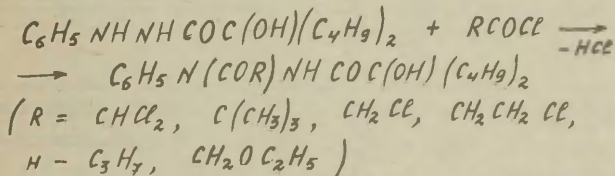 C₆H₅ NH NH CO C(OH)(C₄H₉)₂ + RCOCl ⟶
-HCl
⟶ C₆H₅ N(COR) NH CO C(OH) (C₄H₉)₂
(R = CHCl₂, C(CH₃)₃, CH₂Cl, CH₂CH₂Cl,
н - C₃H₇, CH₂OC₂H₅)